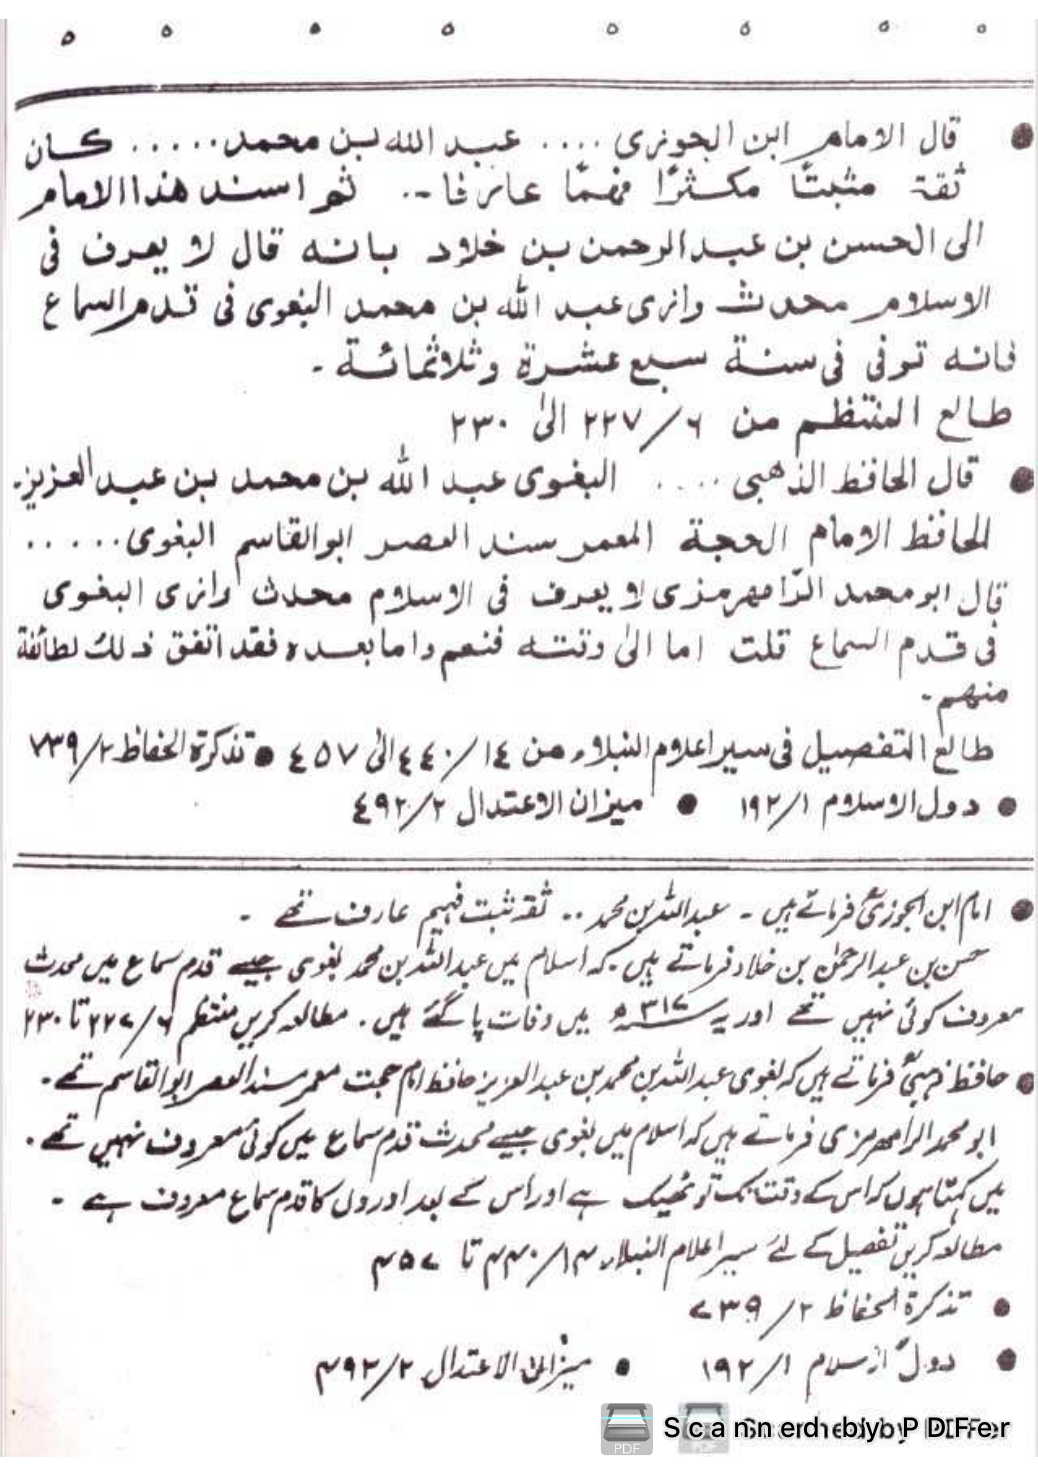 ● قال الامام ابن الجوزی .... عبد الله بن محمد..... کان
ثقة مثبتًا مکثرًا فهمًا عارفا -. ثم اسند هذا الامام
الی الحسن بن عبد الرحمن بن خلاد بانه قال لا یعرف فی
الاسلام محدث وازی عبد الله بن محمد البغوی فی قدم السماع
فانه توفی فی سنة سبع عشرة وثلاثمائة -
طالع المنتظم من ٦/٢٢٧ الیٰ ٢٣٠
● قال الحافظ الذهبی .... البغوی عبد الله بن محمد بن عبد العزیز-
الحافظ الامام الحجة المعمر سند العصر ابو القاسم البغوی.....
قال ابو محمد الرّامهرمزی لا یعرف فی الاسلام محدث وازی البغوی
فی قدم السماع قلت اما الیٰ وقته فنعم واما بعده فقد اتفق ذلك لطائفة
منهم-
طالع التفصیل فی سیر اعلام النبلاء من ١٤/٤٤٠ الیٰ ٤٥٧ ● تذکرة الحفاظ ٢/٧٣٩
● دول الاسلام ١/١٩٢ ● میزان الاعتدال ٢/٤٩٢
● امام ابن الجوزیؒ فرماتے ہیں - عبد اللہ بن محمد .. ثقہ ثبت فہیم عارف تھے -
حسن بن عبد الرحمٰن بن خلاد فرماتے ہیں کہ اسلام میں عبد اللہ بن محمد بغوی جیسے قدم سماع میں محدث
معروف کوئی نہیں تھے اور یہ ۳۱۷ھ میں وفات پا گئے ہیں. مطالعہ کریں منتظم ۶/۲۲۷ تا ۲۳۰
● حافظ ذہبیؒ فرماتے ہیں کہ بغوی عبد اللہ بن محمد بن عبد العزیز حافظ امام حجت معمر مسند العصر ابو القاسم تھے-
ابو محمد الرامهرمزی فرماتے ہیں کہ اسلام میں بغوی جیسے محدث قدم سماع میں کوئی معروف نہیں تھے.
میں کہتا ہوں کہ اس کے وقت تک تو ٹھیک ہے اور اس کے بعد اوروں کا قدم سماع معروف ہے -
مطالعہ کریں تفصیل کے لئے سیر اعلام النبلاء ۱۴/۴۴۰ تا ۴۵۷
● تذکرة الحفاظ ۲/۷۳۹
● دول اسلام ۱/۱۹۲ ● میزان الاعتدال ۲/۴۹۲
Scanned by PDFer